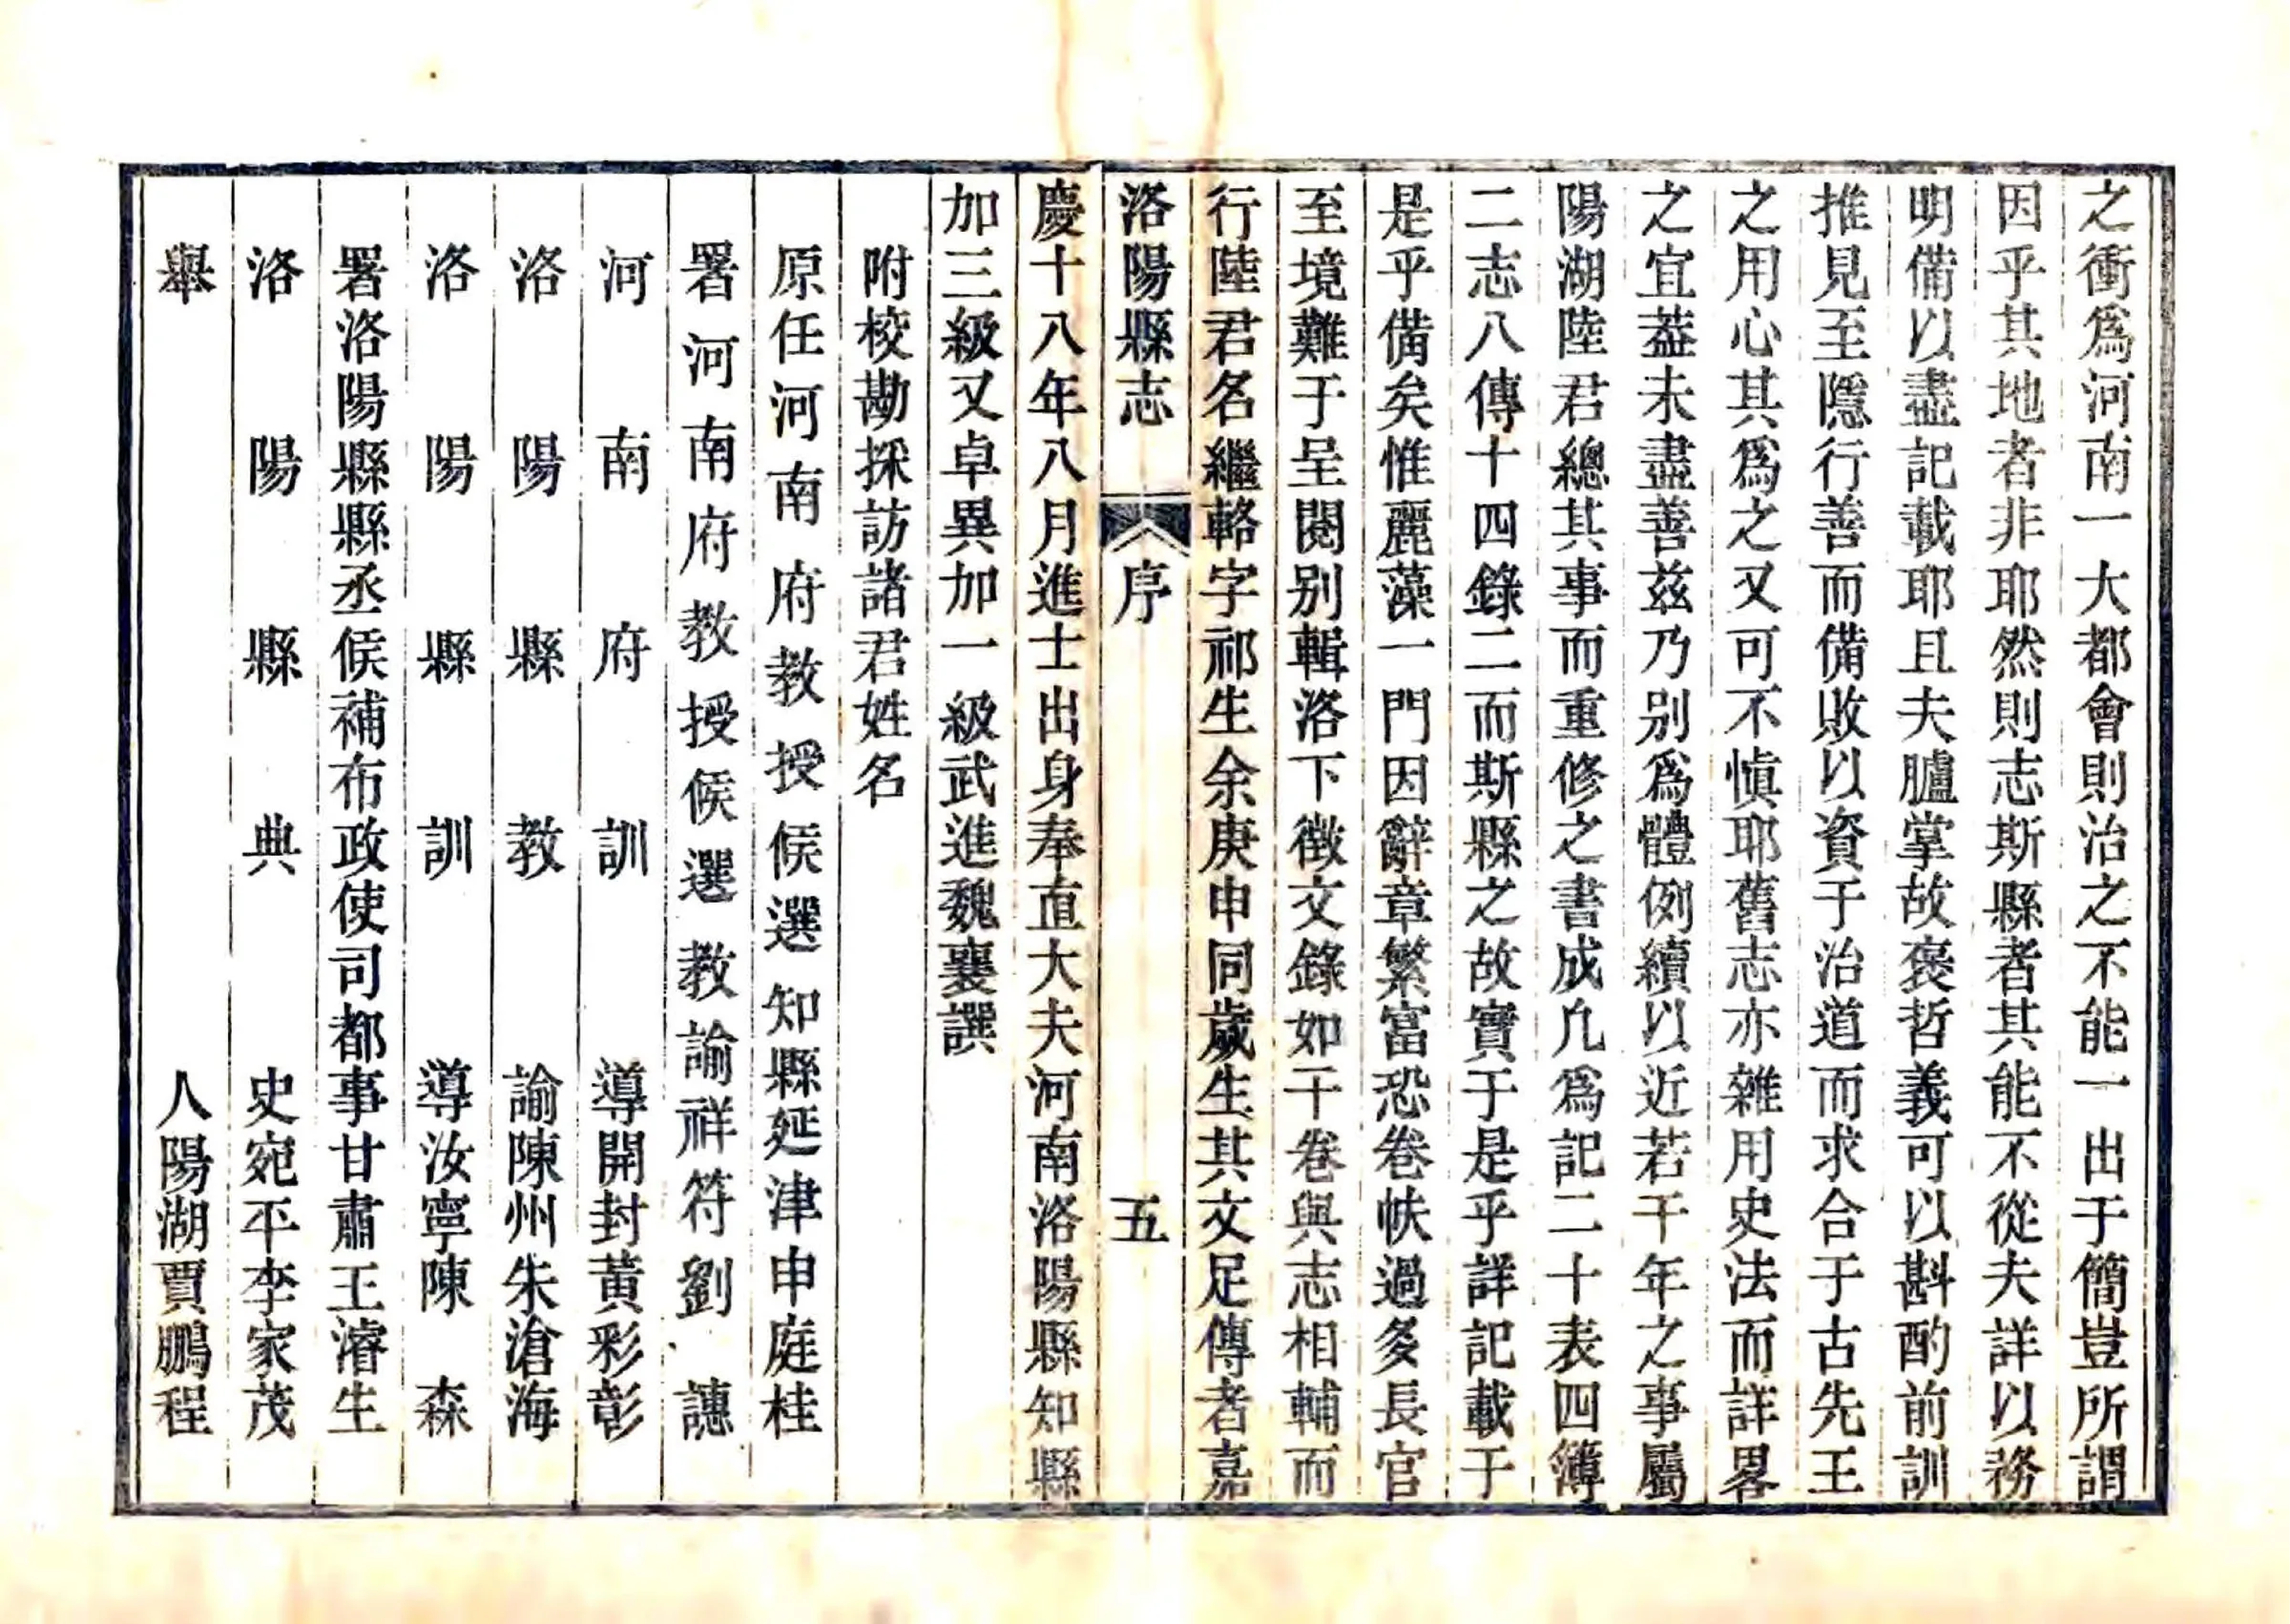 之衝爲河南一大都會則治之不能一出于簡豈所謂
因乎其地者非耶然則志斯縣者其能不從夫詳以務
明備以盡記載耶且夫臚掌故裒哲義可以斟酌前訓
推見至隱行善而備敗以資于治道而求合于古先王
之用心其爲之又可不慎耶舊志亦雜用史法而詳畧
之宜葢未盡善茲乃別爲體例續以近若干年之事屬
陽湖陸君總其事而重修之書成凢爲記二十表四簿
二志八傳十四錄二而斯縣之故實于是乎詳記載于
是乎備矣惟麗藻一門因辭章繁富恐卷帙過多長官
至境難于呈閱別輯洛下徵文錄如干卷與志相輔而
行陸君名繼輅字祁生余庚申同歲生其文足傳者嘉
洛陽縣志 序 五
慶十八年八月進士出身奉直大夫河南洛陽縣知縣
加三級又卓異加一級武進魏襄譔
附校勘採訪諸君姓名
原任河南府教授候選知縣延津申庭桂
署河南府教授候選教諭祥符劉譓
河南府訓導開封黃彩彰
洛陽縣教諭陳州朱滄海
洛陽縣訓導汝寧陳森
署洛陽縣縣丞候補布政使司都事甘肅王濬生
洛陽縣典史宛平李家茂
舉人陽湖賈鵬程